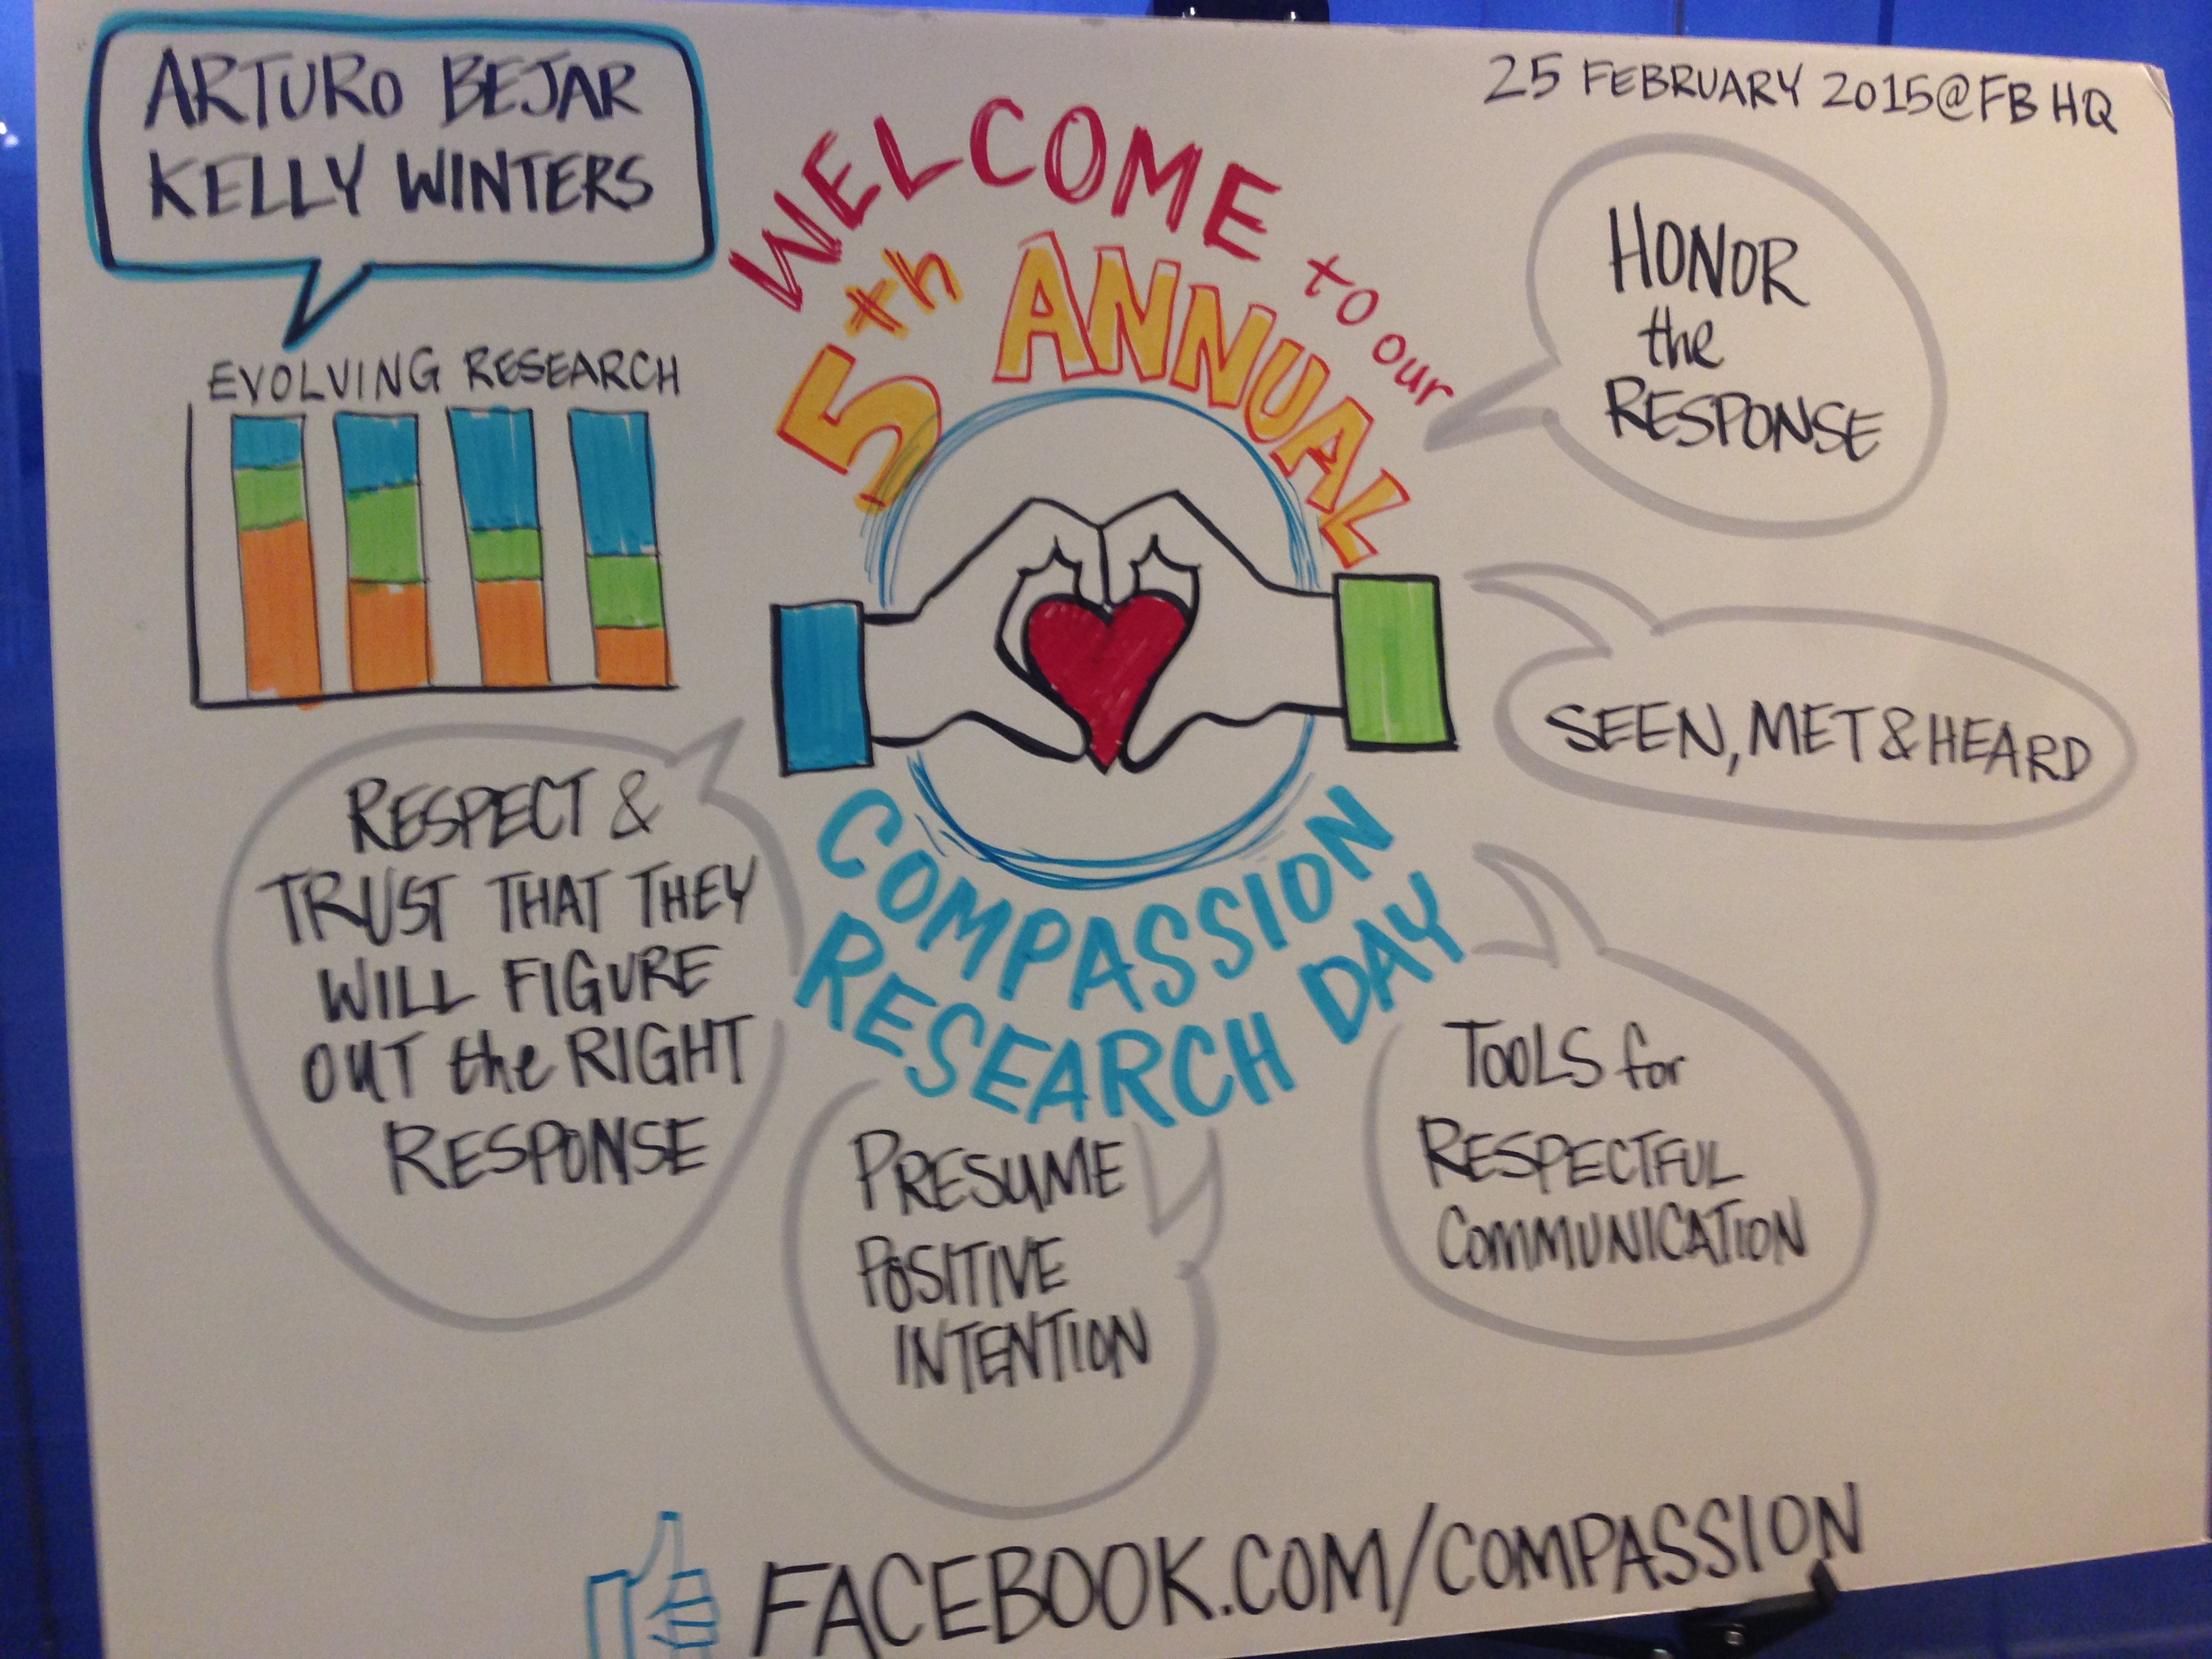 ARTURO BEJAR
KELLY WINTERS
25 FEBRUARY 2015@FB HQ
WELCOME to our
5th ANNUAL
COMPASSION
RESEARCH DAY
EVOLVING RESEARCH
HONOR
the
RESPONSE
SEEN, MET & HEARD
RESPECT &
TRUST THAT THEY
WILL FIGURE
OUT the RIGHT
RESPONSE
PRESUME
POSITIVE
INTENTION
TOOLS for
RESPECTFUL
COMMUNICATION
FACEBOOK.COM/COMPASSION